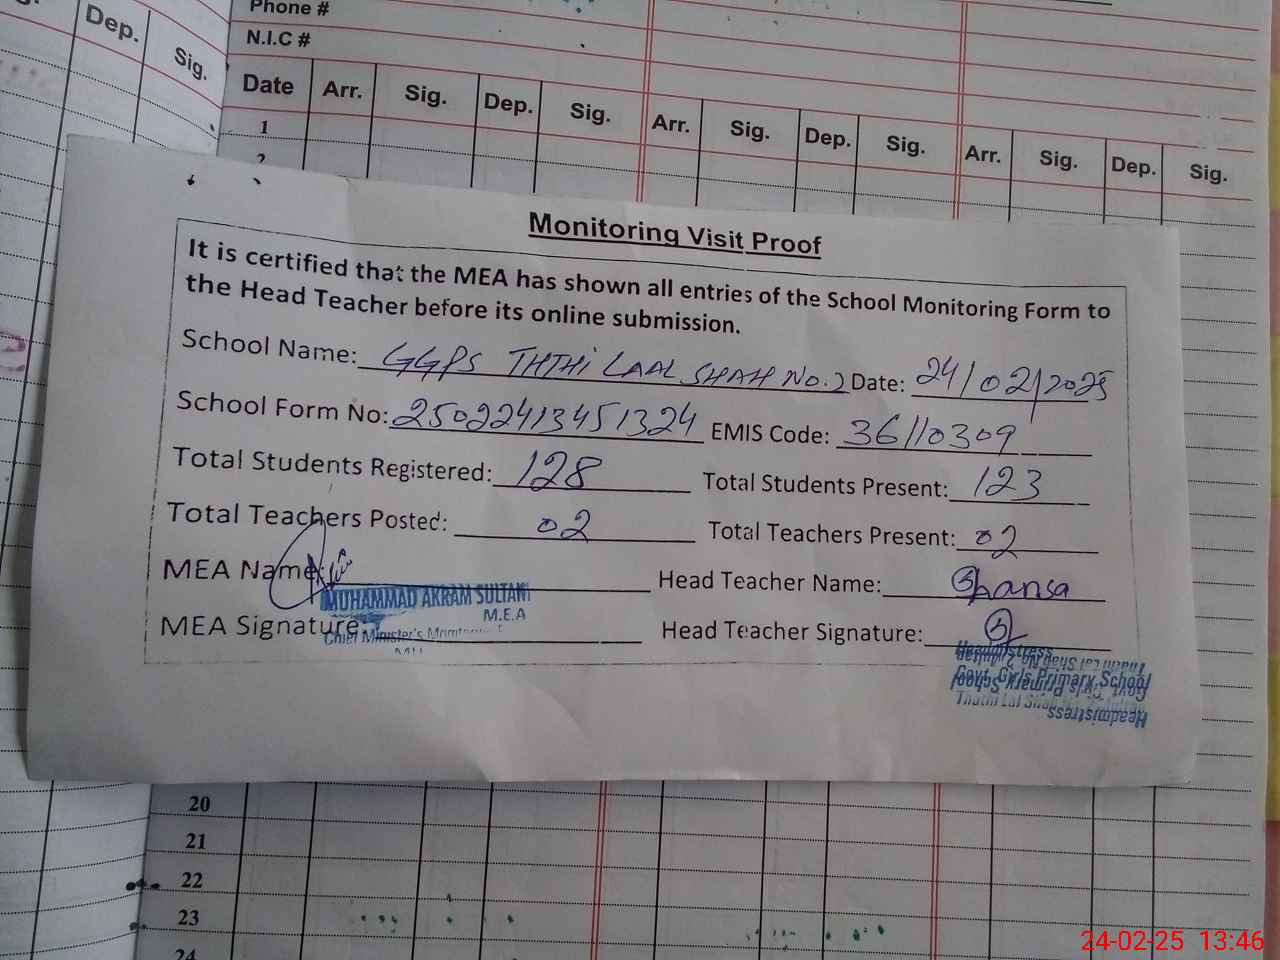 Dep.
Sig.
Phone #
N.I.C #
Date Arr. Sig. Dep. Sig. Arr. Sig. Dep. Sig. Arr. Sig. Dep. Sig.
1
2
Monitoring Visit Proof
It is certified that the MEA has shown all entries of the School Monitoring Form to
the Head Teacher before its online submission.
School Name: GGPS THTHi LAAL SHAH No. 2 Date: 24/02/2025
School Form No: 25022413451324 EMIS Code: 36110309
Total Students Registered: 128 Total Students Present: 123
Total Teachers Posted: 02 Total Teachers Present: 02
MEA Name: Head Teacher Name:
MUHAMMAD AKRAM SULTANI
M.E.A
MEA Signature: Head Teacher Signature:
Chief Minister's
Headmistress
Govt. Girls Primary School
Thathi Lal
Headmistress
20
21
22
23
24
24-02-25 13:46